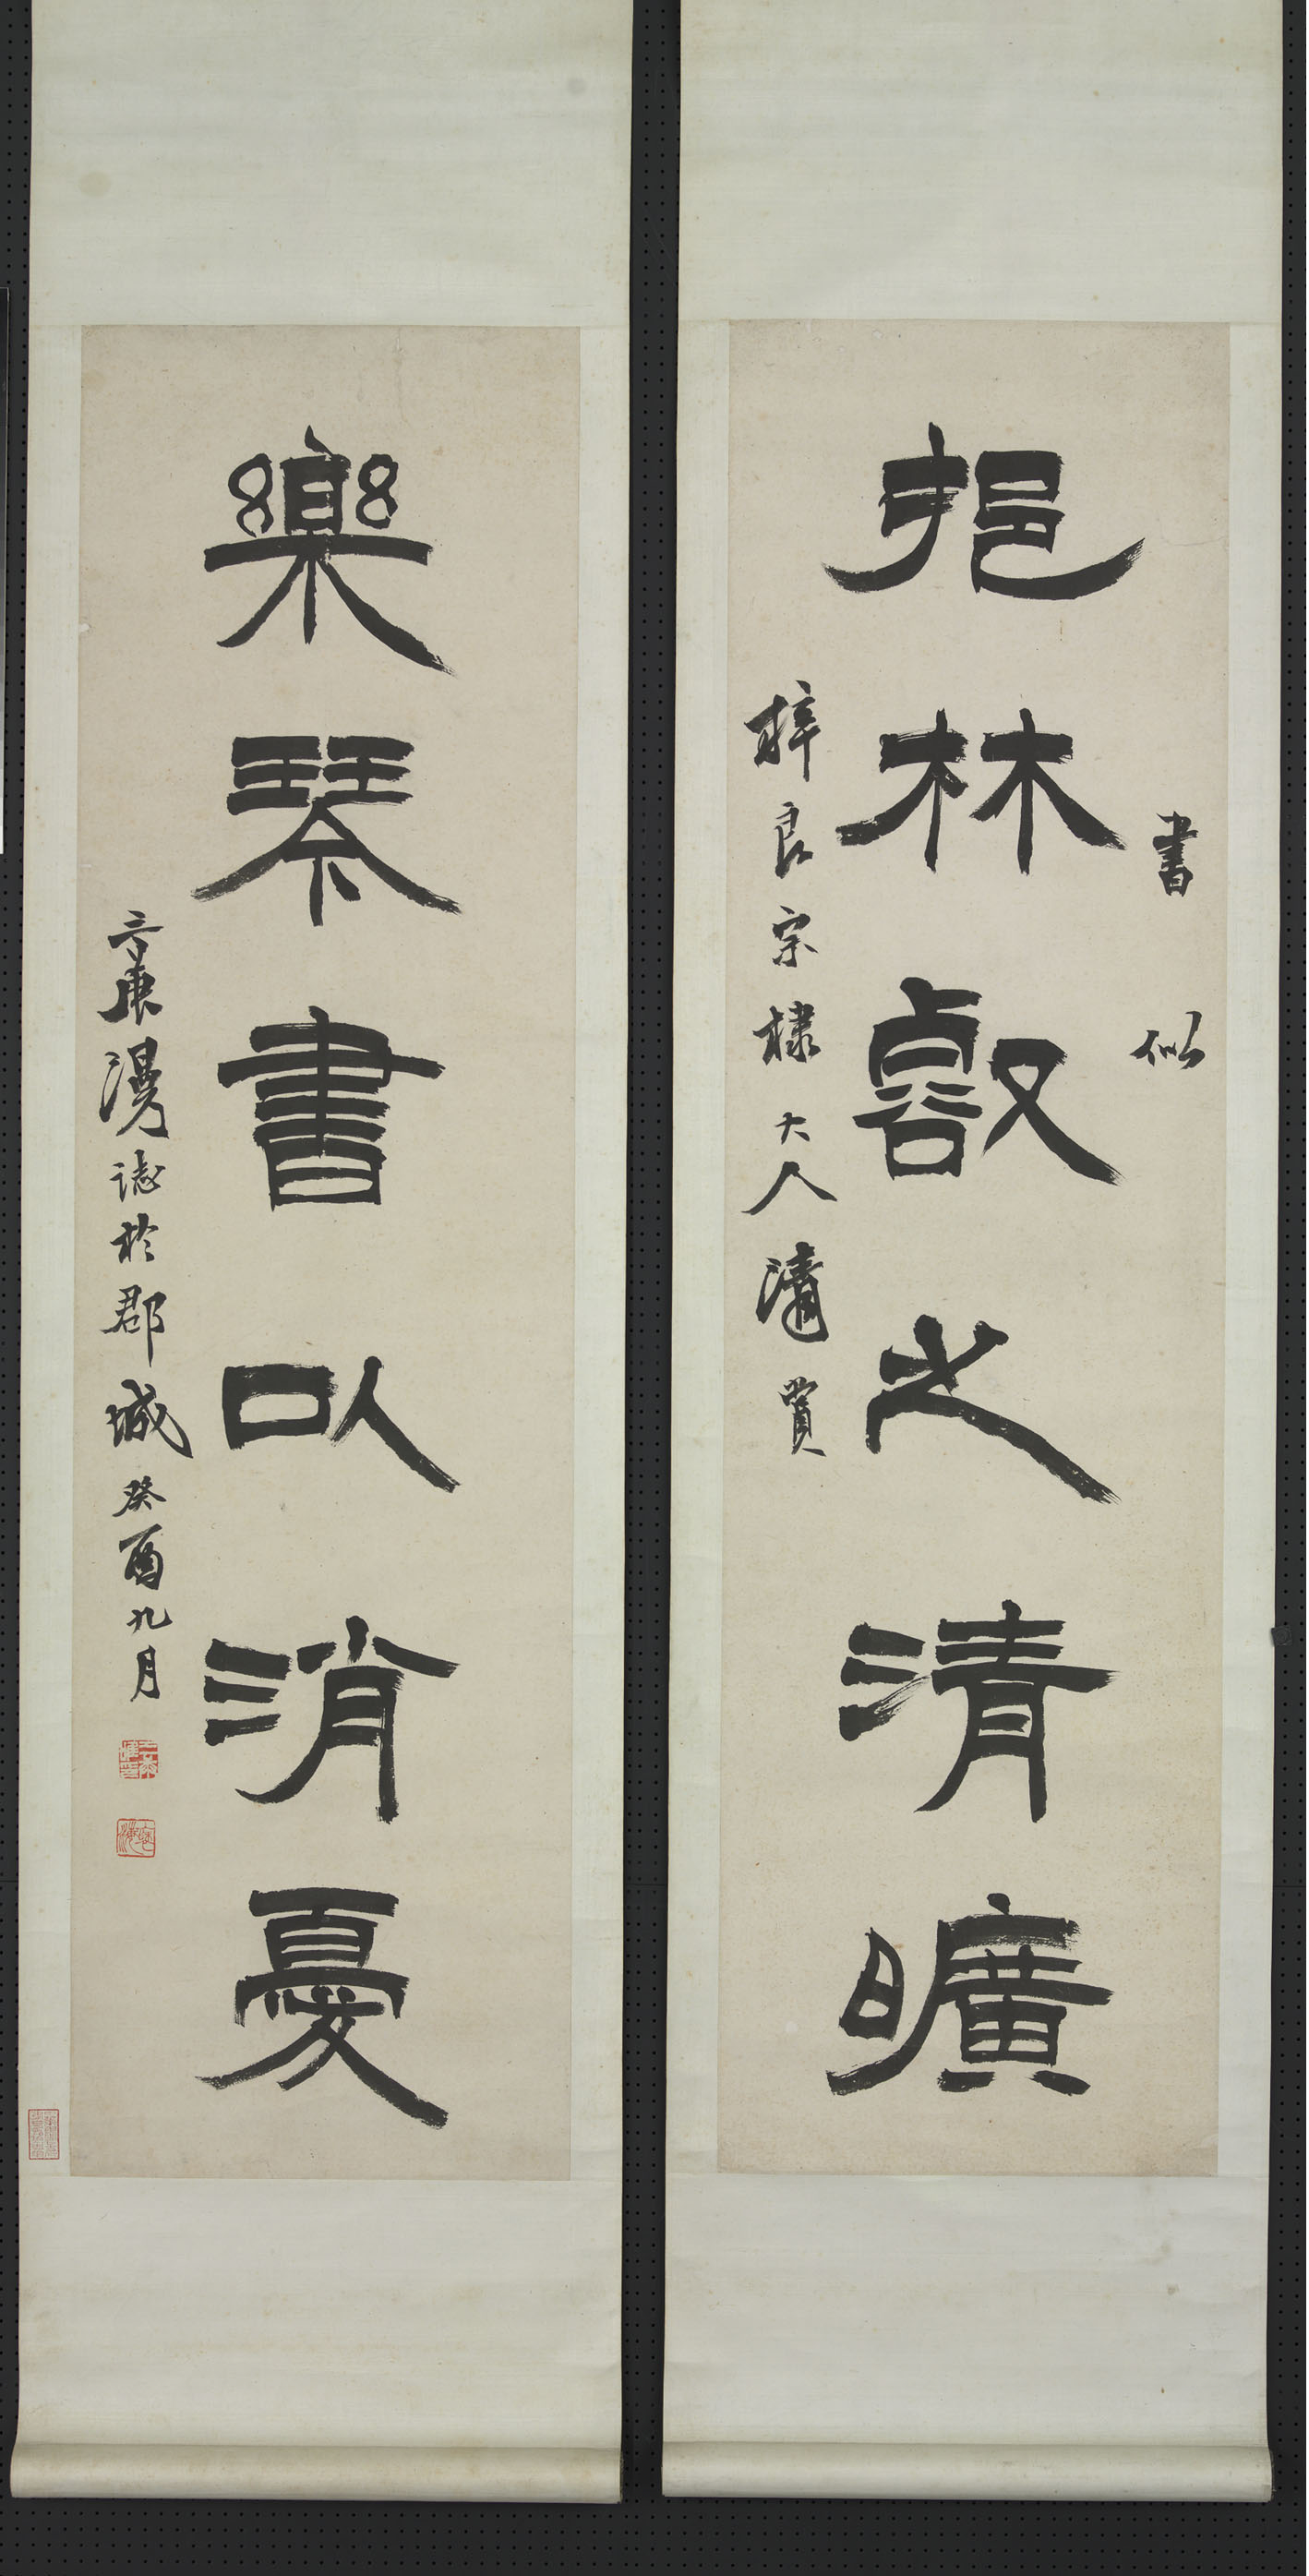 書似
挹林㕡之清曠
梓良宗棣大人清賞
樂琴書以消憂
康漫誌於郡城癸酉九月